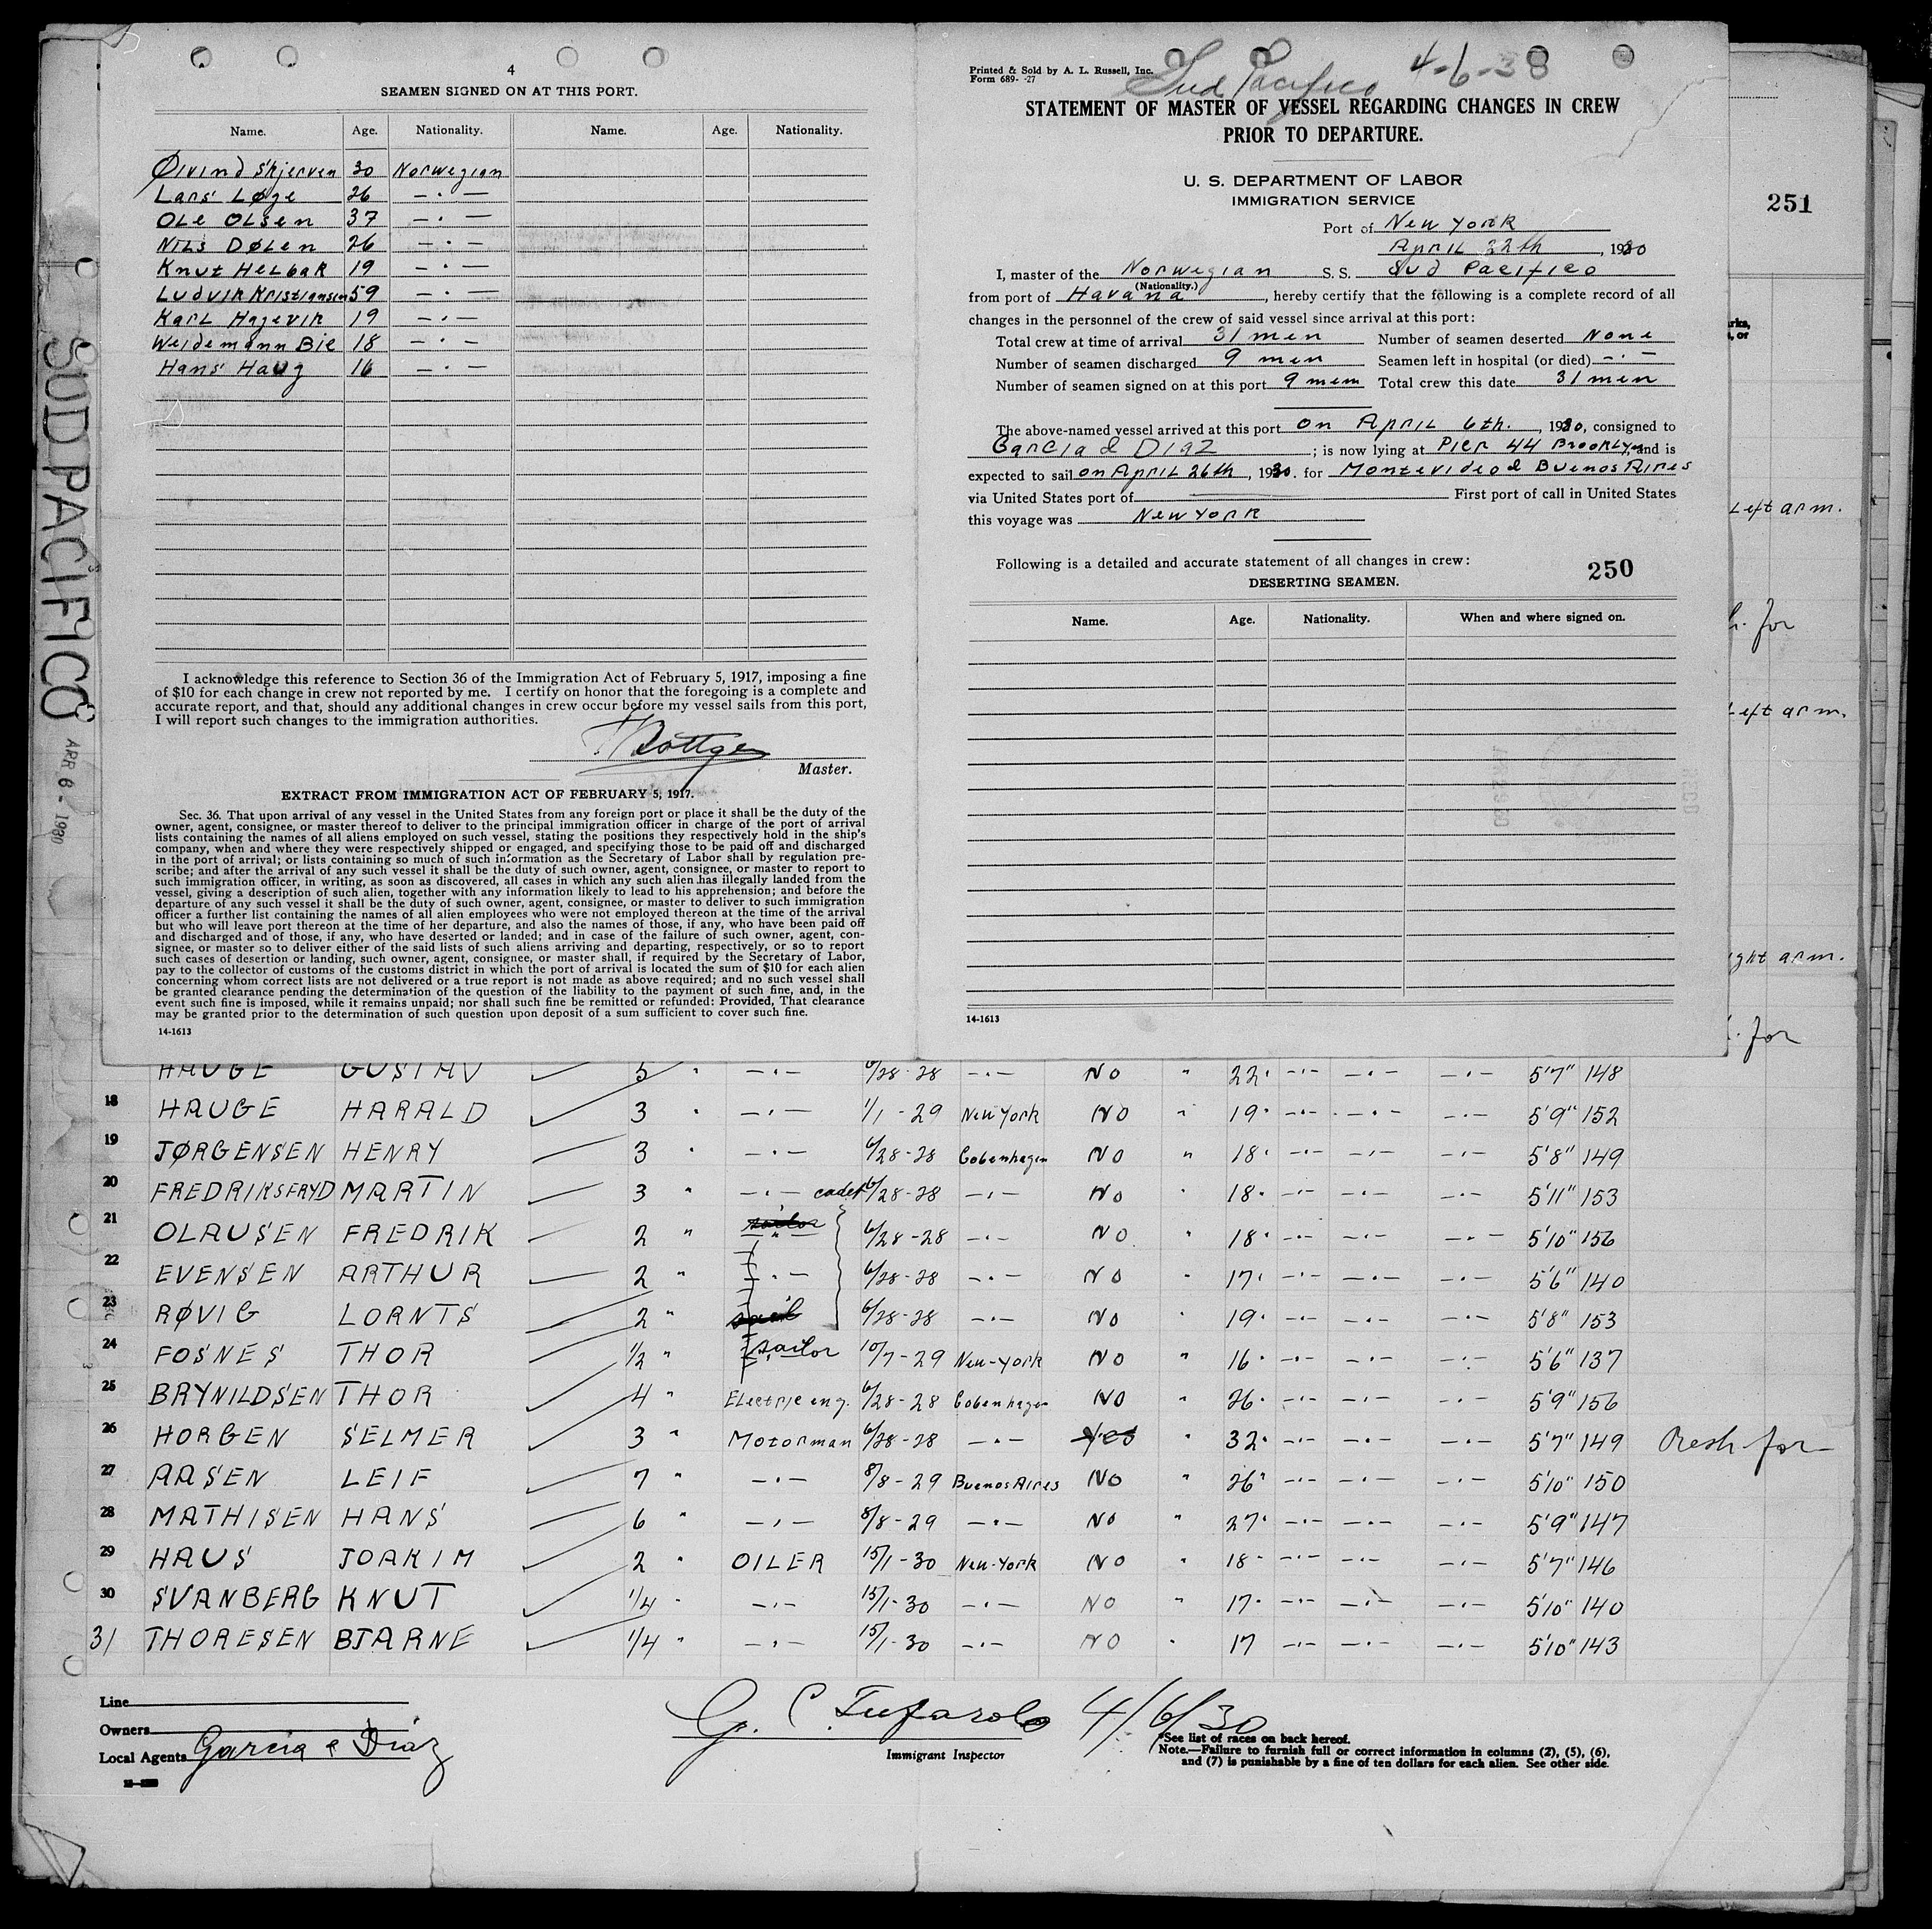 4
SEAMEN SIGNED ON AT THIS PORT.
Name. Age. Nationality. Name. Age. Nationality.
Øivind Skjerven 30 Norwegian
Lars Løge 26 — · —
Ole Olsen 37 — · —
Nils Dølen 26 — · —
Knut Helbak 19 — · —
Ludvik Kristiansen 59 — · —
Karl Hagevik 19 — · —
Weidemann Bie 18 — · —
Hans Haug 16 — · —
I acknowledge this reference to Section 36 of the Immigration Act of February 5, 1917, imposing a fine
of $10 for each change in crew not reported by me. I certify on honor that the foregoing is a complete and
accurate report, and that, should any additional changes in crew occur before my vessel sails from this port,
I will report such changes to the immigration authorities.
Master.
EXTRACT FROM IMMIGRATION ACT OF FEBRUARY 5, 1917.
Sec. 36. That upon arrival of any vessel in the United States from any foreign port or place it shall be the duty of the
owner, agent, consignee, or master thereof to deliver to the principal immigration officer in charge of the port of arrival
lists containing the names of all aliens employed on such vessel, stating the positions they respectively hold in the ship's
company, when and where they were respectively shipped or engaged, and specifying those to be paid off and discharged
in the port of arrival; or lists containing so much of such information as the Secretary of Labor shall by regulation pre-
scribe; and after the arrival of any such vessel it shall be the duty of such owner, agent, consignee, or master to report to
such immigration officer, in writing, as soon as discovered, all cases in which any such alien has illegally landed from the
vessel, giving a description of such alien, together with any information likely to lead to his apprehension; and before the
departure of any such vessel it shall be the duty of such owner, agent, consignee, or master to deliver to such immigration
officer a further list containing the names of all alien employees who were not employed thereon at the time of the arrival
but who will leave port thereon at the time of her departure, and also the names of those, if any, who have been paid off
and discharged and of those, if any, who have deserted or landed; and in case of the failure of such owner, agent, con-
signee, or master so to deliver either of the said lists of such aliens arriving and departing, respectively, or so to report
such cases of desertion or landing, such owner, agent, consignee, or master shall, if required by the Secretary of Labor,
pay to the collector of customs of the customs district in which the port of arrival is located the sum of $10 for each alien
concerning whom correct lists are not delivered or a true report is not made as above required; and no such vessel shall
be granted clearance pending the determination of the question of the liability to the payment of such fine, and, in the
event such fine is imposed, while it remains unpaid; nor shall such fine be remitted or refunded: Provided, That clearance
may be granted prior to the determination of such question upon deposit of a sum sufficient to cover such fine.
14-1613
Printed & Sold by A. L. Russell, Inc.
Form 689- -27
Sud Pacifico 4-6-38
STATEMENT OF MASTER OF VESSEL REGARDING CHANGES IN CREW
PRIOR TO DEPARTURE.
U. S. DEPARTMENT OF LABOR
IMMIGRATION SERVICE
Port of New York
April 22th, 1930
I, master of the Norwegian S. S. Sud Pacifico
(Nationality.)
from port of Havana, hereby certify that the following is a complete record of all
changes in the personnel of the crew of said vessel since arrival at this port:
Total crew at time of arrival 31 men Number of seamen deserted None
Number of seamen discharged 9 men Seamen left in hospital (or died) — · —
Number of seamen signed on at this port 9 mem Total crew this date 31 men
The above-named vessel arrived at this port on April 6th., 1930, consigned to
Garcia & Diaz; is now lying at Pier 44 Brooklyn, and is
expected to sail on April 26th, 1930. for Montevideo & Buenos Aires
via United States port of First port of call in United States
this voyage was New York
Following is a detailed and accurate statement of all changes in crew:
250
DESERTING SEAMEN.
Name. Age. Nationality. When and where signed on.
14-1613
251
Left arm.
for
Left arm.
ght arm.
for
SUD PACIFICO
APR 6 - 1930
HAUGE GUSTAV 5 " — · — 6/28-28 — · — NO " 22 — · — — · — — · — 5'7" 148
18 HAUGE HARALD 3 " — · — 1/1-29 New York NO " 19 — · — — · — — · — 5'9" 152
19 JØRGENSEN HENRY 3 " — · — 6/28-28 Cobenhagen NO " 18 — · — — · — — · — 5'8" 149
20 FREDRIKSFRYD MARTIN 3 " — · — cadet 6/28-28 — · — NO " 18 — · — — · — — · — 5'11" 153
21 OLAUSEN FREDRIK 2 " sailor 6/28-28 — · — NO " 18 — · — — · — — · — 5'10" 156
22 EVENSEN ARTHUR 2 " — · — 6/28-28 — · — NO " 17 — · — — · — — · — 5'6" 140
23 RØVIG LORNTS 2 " 6/28-28 — · — NO " 19 — · — — · — — · — 5'8" 153
24 FOSNES THOR 1/2 " sailor 10/7-29 New-York NO " 16 — · — — · — — · — 5'6" 137
25 BRYNILDSEN THOR 4 " Electric eng. 6/28-28 Cobenhagen NO " 26 — · — — · — — · — 5'9" 156
26 HORGEN SELMER 3 " Motorman 6/28-28 — · — Yes " 32 — · — — · — — · — 5'7" 149 Resh for
27 AASEN LEIF 7 " — · — 8/8-29 Buenos Aires NO " 26 — · — — · — — · — 5'10" 150
28 MATHISEN HANS 6 " — · — 8/8-29 — · — NO " 27 — · — — · — — · — 5'9" 147
29 HAUS JOAKIM 2 " OILER 15/1-30 New-York NO " 18 — · — — · — — · — 5'7" 146
30 SVANBERG KNUT 1/4 " — · — 15/1-30 — · — NO " 17 — · — — · — — · — 5'10" 140
31 THORESEN BJARNE 1/4 " — · — 15/1-30 — · — NO " 17 — · — — · — — · — 5'10" 143
Line
Owners
Local Agents Garcia e Diaz
G. C. Tufarolo 4/6/30
Immigrant Inspector
*See list of races on back hereof.
Note.—Failure to furnish full or correct information in columns (2), (5), (6),
and (7) is punishable by a fine of ten dollars for each alien. See other side.